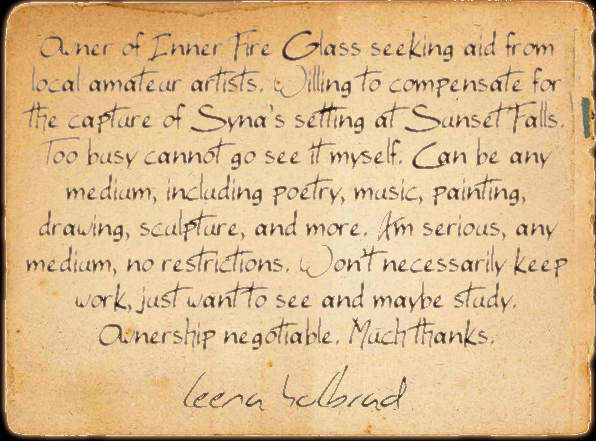 Owner of Inner Fire Glass seeking aid from
local amateur artists. Willing to compensate for
the capture of Syna's setting at Sunset Falls.
Too busy cannot go see it myself. Can be any
medium, including poetry, music, painting,
drawing, sculpture, and more. I'm serious, any
medium, no restrictions. Won't necessarily keep
work, just want to see and maybe study.
Ownership negotiable. Much thanks.
Leena